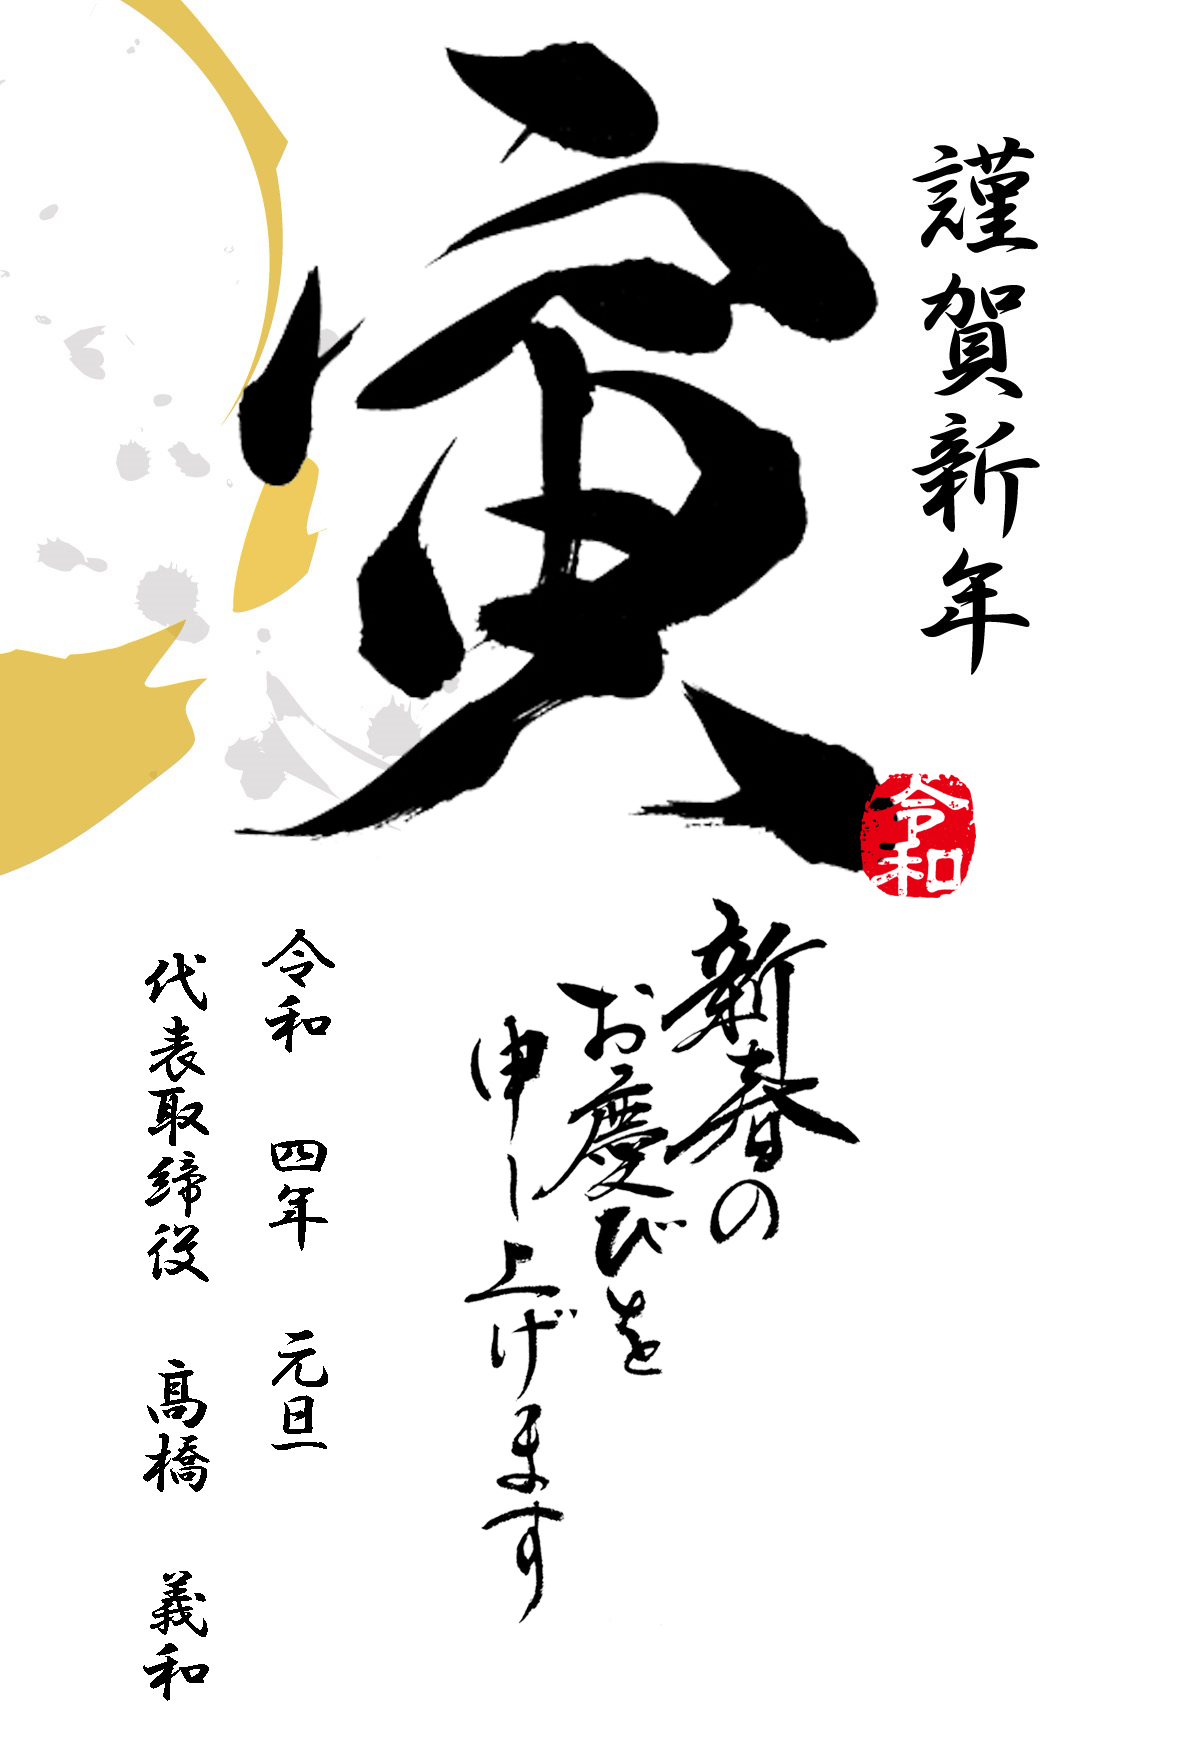 謹賀新年
寅
令和
新春の
お慶びを
申し上げます
令和 四年 元旦
代表取締役 髙橋 義和